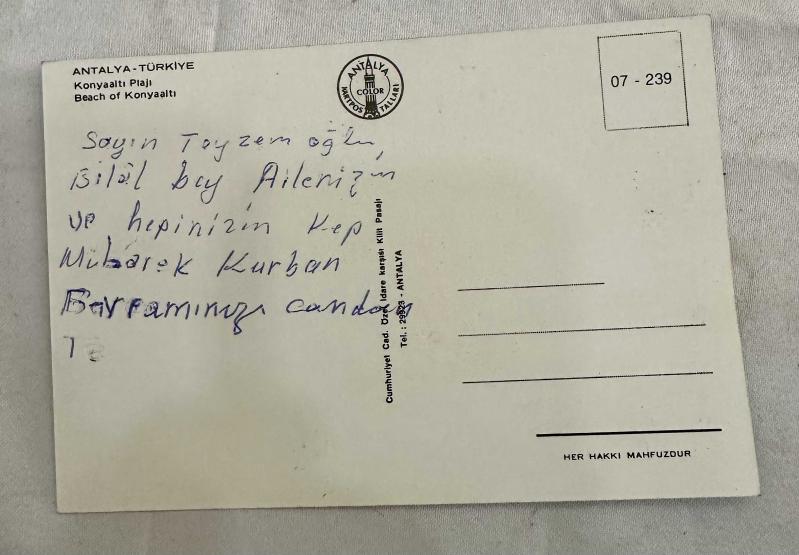 ANTALYA-TÜRKİYE
Konyaaltı Plajı
Beach of Konyaaltı
ANTALYA
COLOR
KARTPOSTALLARI
07 - 239
Sayın Teyzem oğlu,
Bilâl bey Ailenizin
ve hepinizin
Mübarek Kurban
Bayramınızı candan
Cumhuriyet Cad. Özel İdare karşısı Kilit Pasajı
Tel.: 29923 - ANTALYA
HER HAKKI MAHFUZDUR